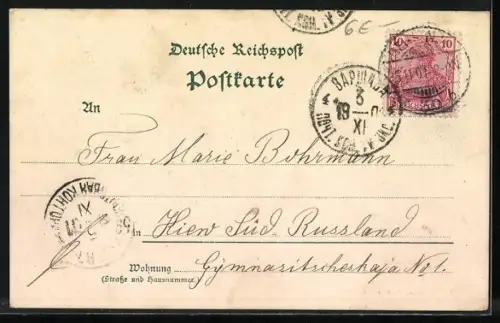 6E-
10 10
Deutsche Reichspost
Postkarte
An
ВАРШАВА
3
19 01
XI
Frau Marie Bohrmann
in Kiew Süd-Russland
Wohnung Gymnasitscheskaja No 1.
(Straße und Hausnummer)